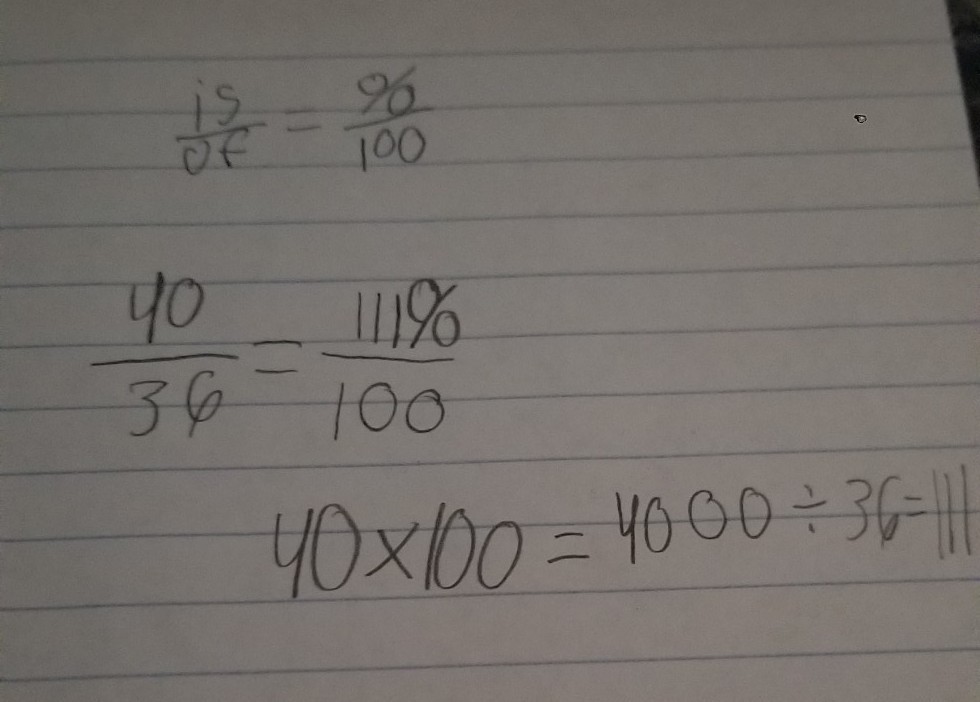 is/of = %/100
40/36 = 111%/100
40×100 = 4000 ÷ 36 = 111